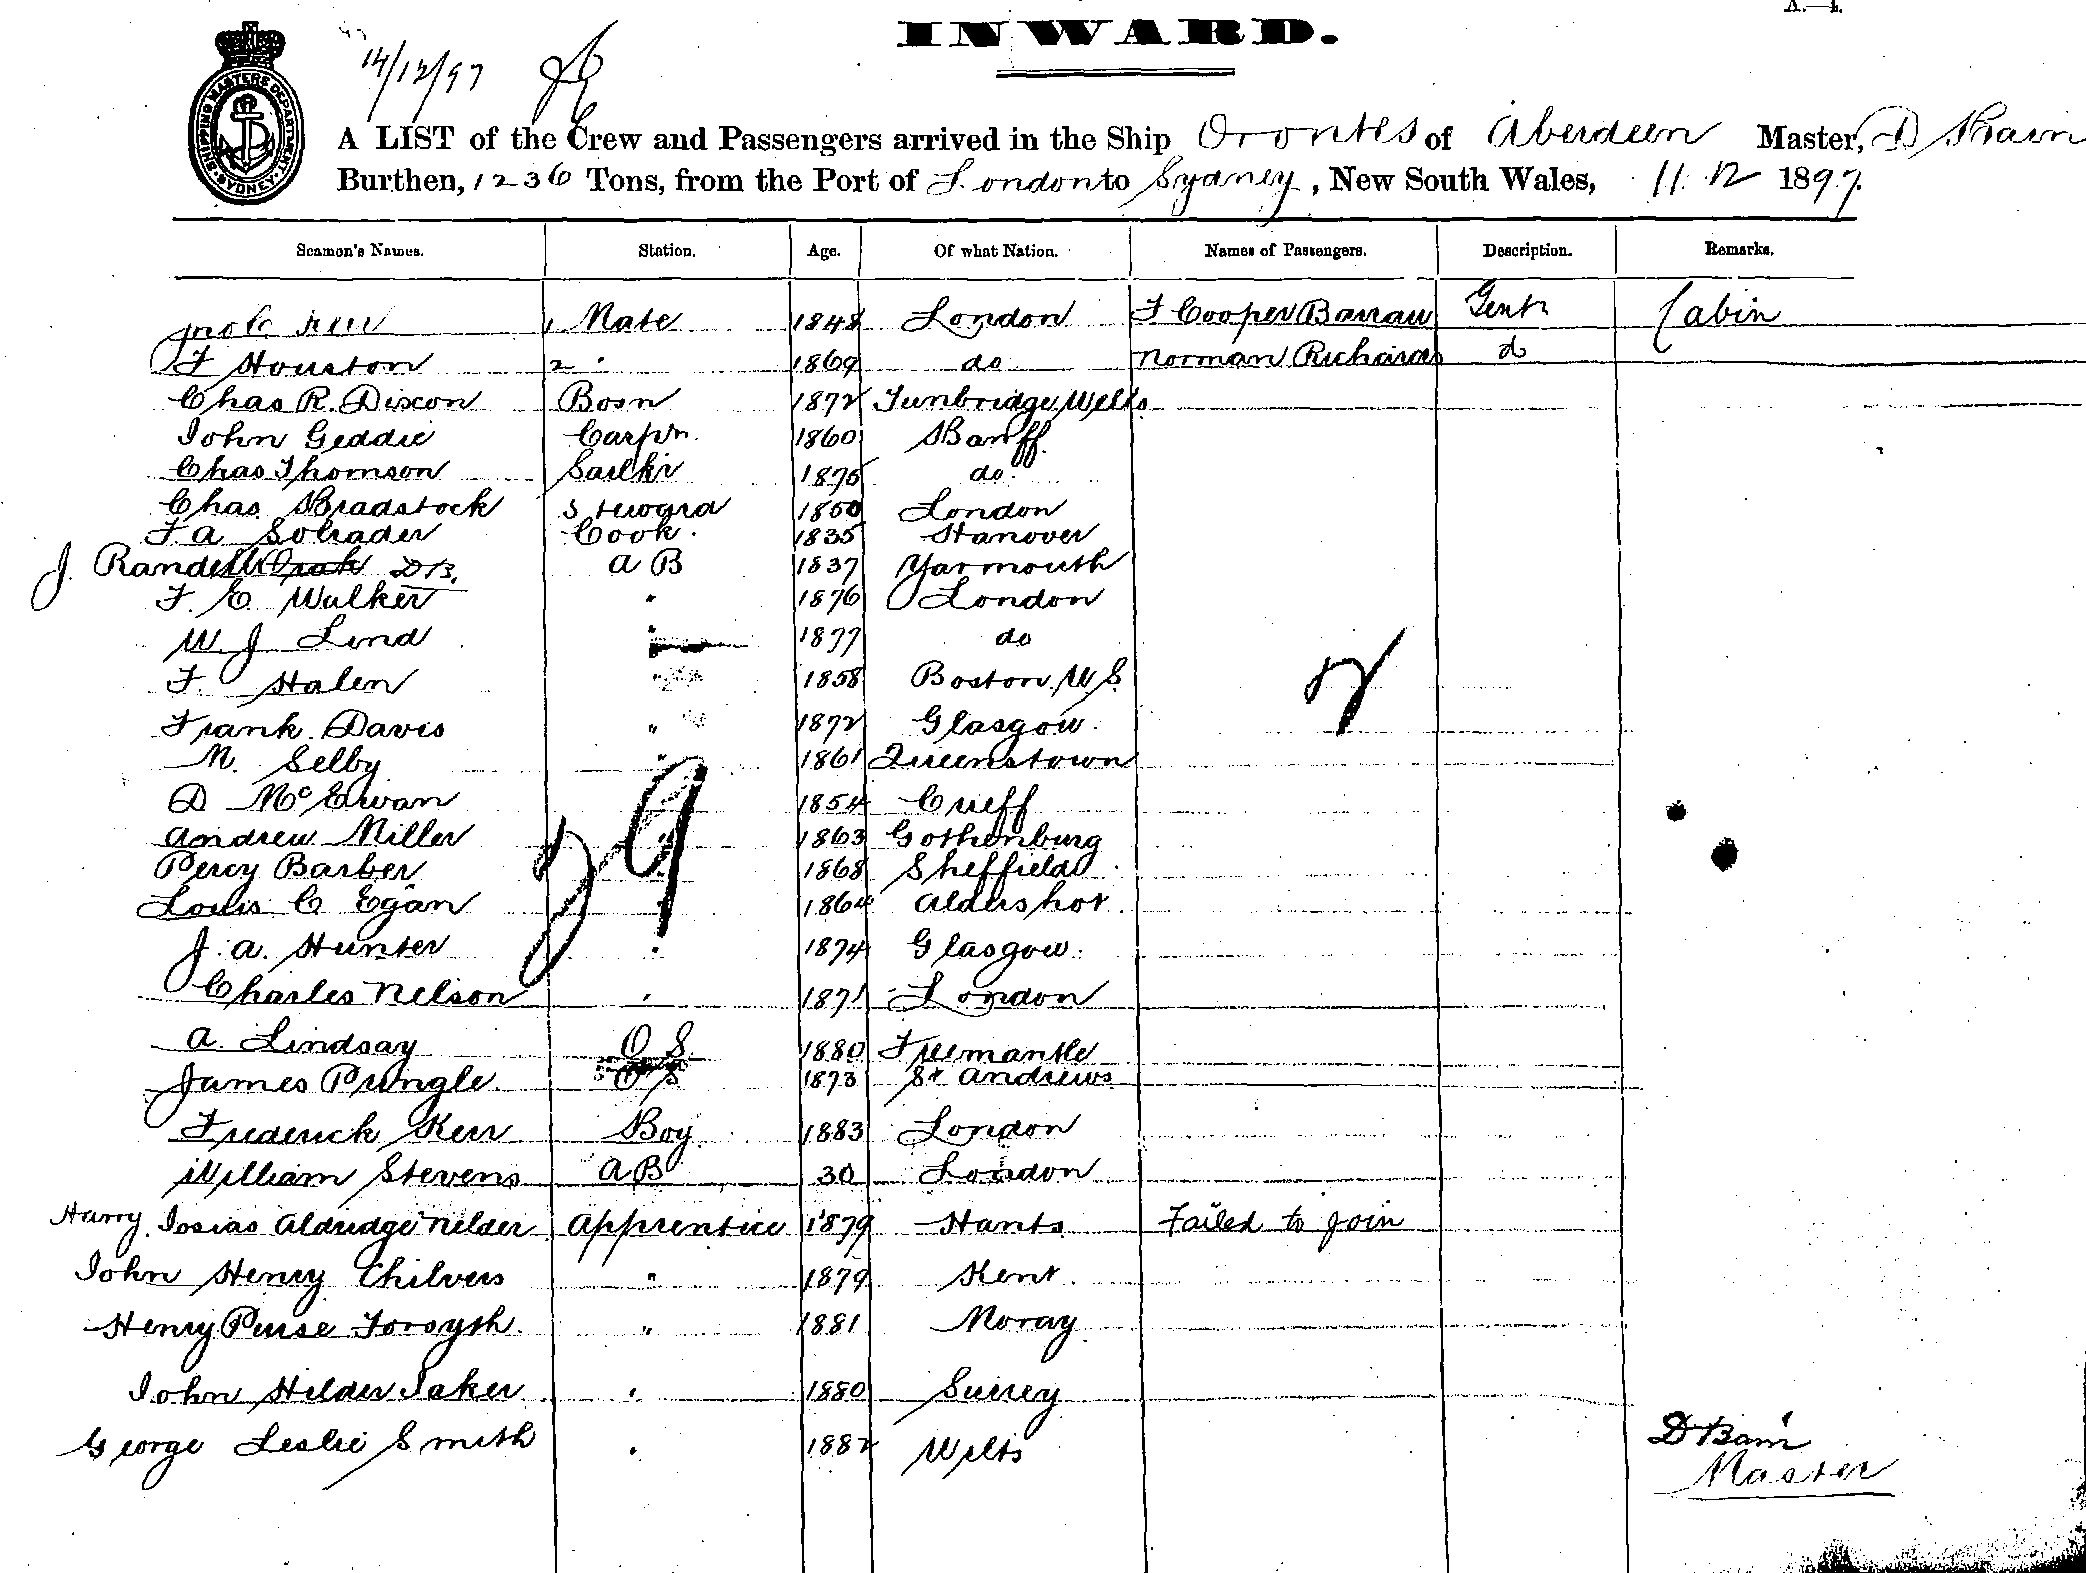 A.—1.
INWARD.
SHIPPING MASTERS DEPARTMENT SYDNEY
14/12/97
A LIST of the Crew and Passengers arrived in the Ship Orontes of Aberdeen Master, D Bain
Burthen, 1236 Tons, from the Port of London to Sydney, New South Wales, 11.12 1897.
Seamen's Names. Station. Age. Of what Nation. Names of Passengers. Description. Remarks.
Kerr 1 Mate 1848 London F Cooper Barrau Gent Cabin
F Houston 2 " 1869 do Norman Richards d
Chas R. Dixon Bosn 1872 Tunbridge Wells
John Geddie Carpn. 1860 Banff.
Chas Thomson Sailkr 1875 do.
Chas Bradstock Steward 1850 London
F. A Solrader Cook. 1835 Hanover
J. Randell A B 1837 Yarmouth
F. E Walker " 1876 London
W. J Lind " 1877 do
F. Halen " 1858 Boston U S.
Frank Davis " 1872 Glasgow.
M. Selby " 1861 Queenstown
D McEwan 1854 Crieff
Andrew Miller " 1863 Gothenburg
Percy Barber " 1868 Sheffield
Louis C Egan " 1864 Aldershot.
J. A. Hunter " 1874 Glasgow.
Charles Nelson " 1871 London
29
2
A. Lindsay O S. 1880 Fremantle
James Pringle. O S 1873 St Andrews
Frederick Kerr Boy 1883 London
William Stevens A B 30 London
Harry Josias Aldridge Nelder Apprentice 1879 Hants Failed to join
John Henry Chilvers " 1879 Kent.
Henry Purse Forsyth. " 1881 Moray
John Hilder Jaker " 1880 Surrey
George Leslie Smith " 1882 Wilts
D Bain
Master